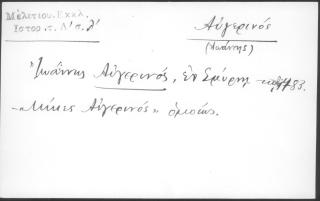 Μελετίου. Εκκλ.
Ιστορ. τ. Α' σ. λ'
Αὐγερινός
(Ἰωάννης)
Ἰωάννης Αὐγερινός, ἐν Σμύρνῃ 1783.
"Μίκες Αὐγερινός" ὁμοίως.